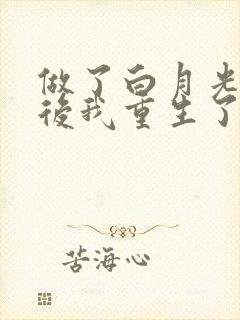 做了白月光
後我重生了
苦海心